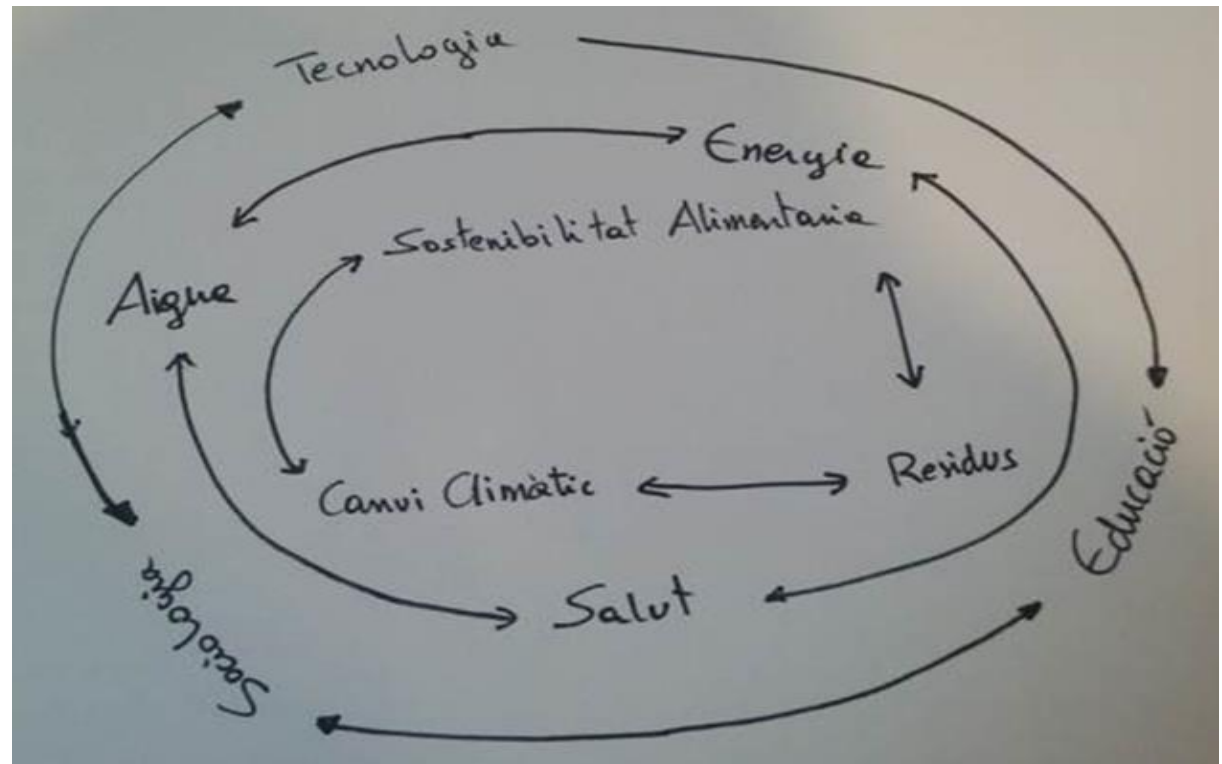 Tecnologia
Energia
Sostenibilitat Alimentaria
Aigua
Canvi Climàtic
Residus
Educació
Salut
Sociologia